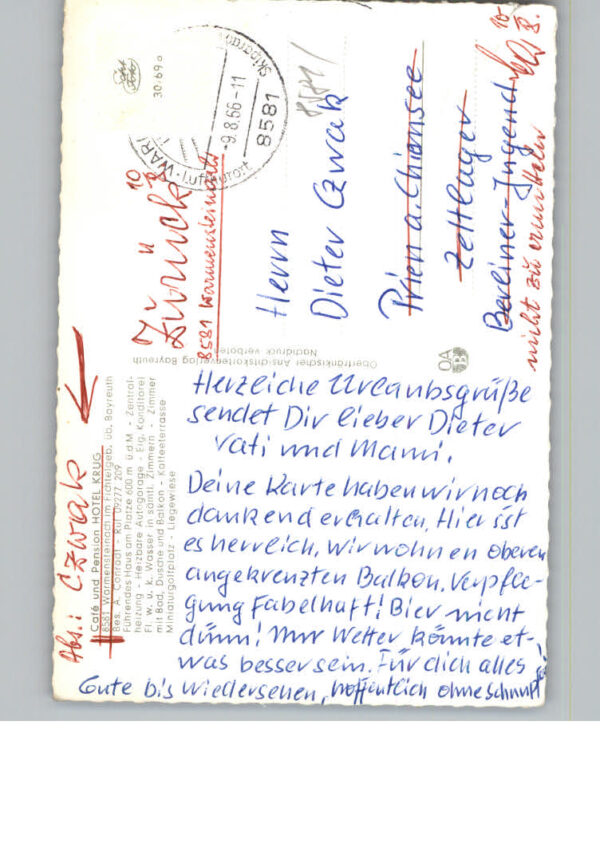 Herzliche Urlaubsgrüße
sendet Dir lieber Dieter
Vati und Mami.
Deine Karte haben wir noch
dankend erhalten, Hier ist
es herrlich, wir wohnen oberen
angekreuzten Balkon. Verpfle-
gung Fabelhaft! Bier nicht
dünn! Nur Wetter könnte et-
was besser sein. Für dich alles
Gute bis Wiedersehen, hoffentlich ohne Schnupf
Herrn
Dieter Czwak
Prien a. Chiemsee
Zeltlager
Berliner-Jugend
nicht zu ermitteln
Zurück
8581 Warmensteinach
8581
-9.8.66-11
Luftkurort
30/69a
Oberfränkischer Ansichtskartenverlag Bayreuth
Nachdruck verboten
OA
Abs.: Czwak
Café und Pension HOTEL KRUG
8581 Warmensteinach im Fichtelgeb. üb. Bayreuth
Bes. A. Conradt - Ruf 09277 209
Führendes Haus am Platze 600 m ü d M - Zentral-
heizung - Heizbare Autogarage - Eig. Konditorei
Fl. w. u. k. Wasser in sämtl. Zimmern - Zimmer
mit Bad, Dusche und Balkon - Kaffeeterrasse
Miniaturgolfplatz - Liegewiese